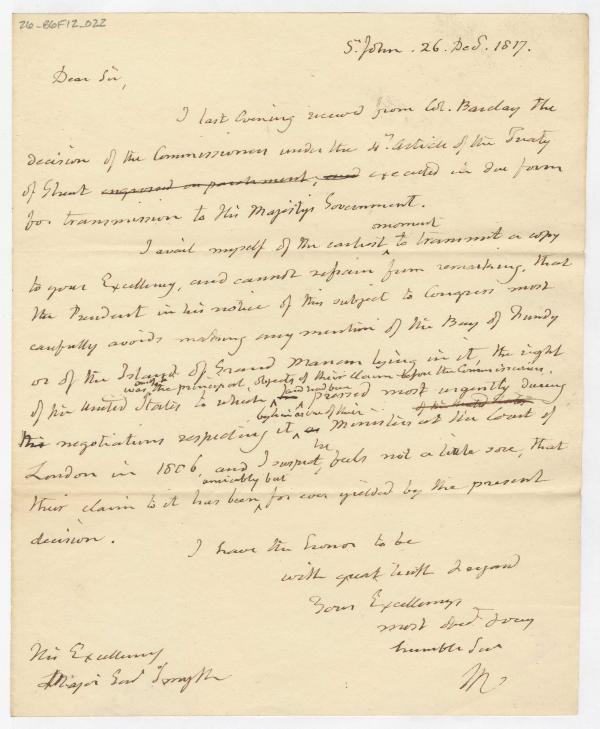 26-B6F12_022
St. John. 26. Decr. 1817.
Dear Sir,
I last Evening received from Col. Barclay the
decision of the Commissioners under the 4th. Article of the Treaty
of Ghent engrossed on parchment, and executed in due form
for transmission to His Majestys Government.
moment
I avail myself of the earliest ^ to transmit a copy
to your Excellency, and cannot refrain from remarking, that
the President in his notice of this subject to Congress most
carefully avoids making any mention of the Bay of Fundy
or of the Island of Grand Manan lying in it, the right
was the principal objects of their claim before the Commissioners.
of the United States to which ^ had been pressed most urgently during
by him as one of their
the negotiations respecting it ^ as Ministers at the Court of
London in 1806, and I suspect, he feels not a little sore, that
amicably but
their claim to it has been ^ for ever yielded by the present
decision.
I have the honor to be
with great truth & regard
Your Excellencys
most obedt. & very
humble Ser
His Excellency
Major Genl Smyth